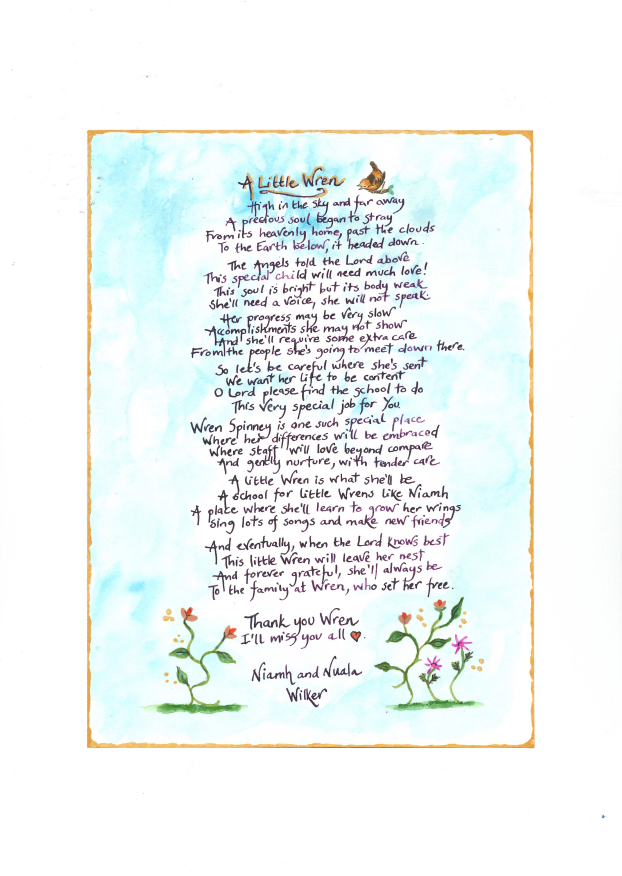 A Little Wren
High in the sky and far away
A precious soul began to stray
From its heavenly home, past the clouds
To the Earth below, it headed down.
The Angels told the Lord above
This special child will need much love!
This soul is bright but its body weak
She'll need a voice, she will not speak.
Her progress may be very slow
Accomplishments she may not show
And she'll require some extra care
From the people she's going to meet down there.
So let's be careful where she's sent
We want her life to be content
O Lord please find the school to do
This very special job for You.
Wren Spinney is one such special place
Where her differences will be embraced
Where staff will love beyond compare
And gently nurture, with tender care
A little Wren is what she'll be
A school for little Wrens like Niamh
A place where she'll learn to grow her wings
Sing lots of songs and make new friends
And eventually, when the Lord knows best
This little Wren will leave her nest
And forever grateful, she'll always be
To the family at Wren, who set her free.
Thank you Wren
I'll miss you all
Niamh and Nuala
Wilker